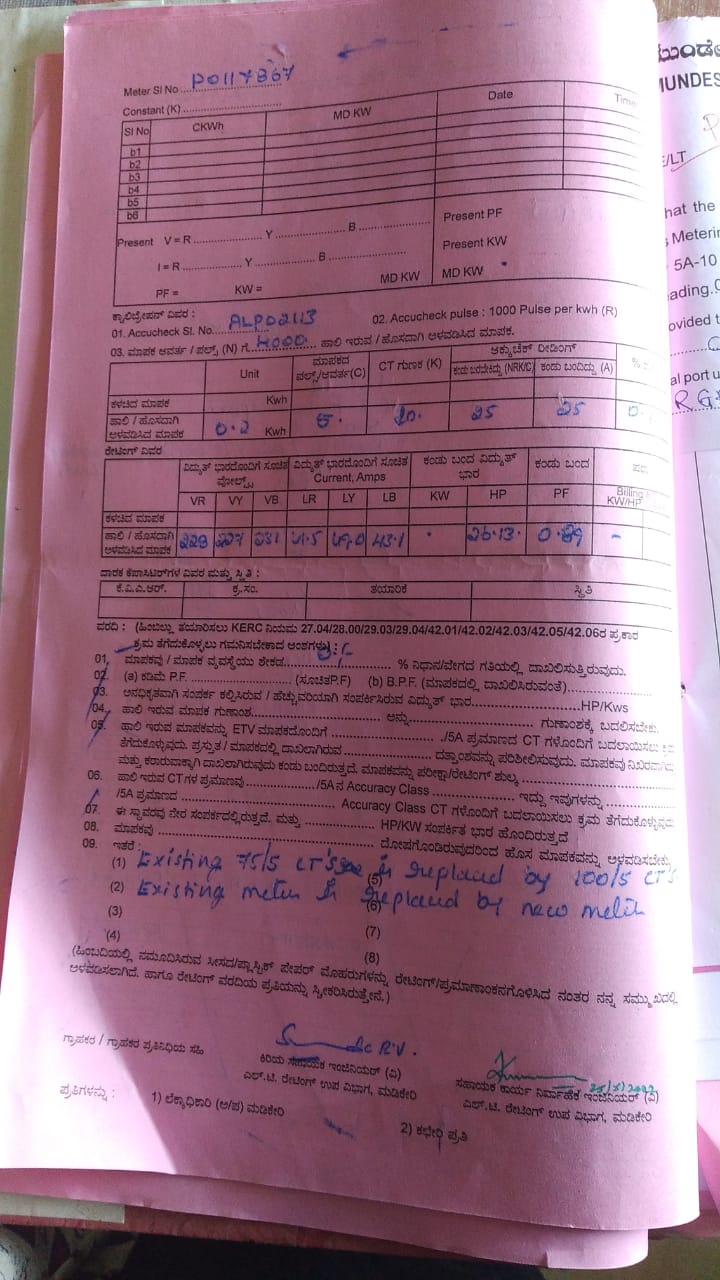 Meter Sl No ... P0117867
Constant (K) ...
Sl No CKWh MD KW Date Time
b1
b2
b3
b4
b5
b6
Present V = R ... Y ... B ... Present PF
I = R ... Y ... B ... Present KW
PF = KW = MD KW MD KW
ಕ್ಯಾಲಿಬ್ರೇಷನ್ ವಿವರ :
01. Accucheck Sl. No. ALPD2113 02. Accucheck pulse : 1000 Pulse per kwh (R)
03. ಮಾಪಕ ಆವರ್ತ / ಪಲ್ಸ್ (N) ಗೆ 4000 ಹಾಲಿ ಇರುವ / ಹೊಸದಾಗಿ ಅಳವಡಿಸಿದ ಮಾಪಕ.
Unit ಮಾಪಕದ ಪಲ್ಸ್/ಆವರ್ತ(C) CT ಗುಣಕ (K) ಅಕ್ಯುಚೆಕ್ ರೀಡಿಂಗ್
(NRK/C) ಕಂಡು ಬಂದಿದ್ದು (A)
ಕಳಚಿದ ಮಾಪಕ Kwh
ಹಾಲಿ / ಹೊಸದಾಗಿ ಅಳವಡಿಸಿದ ಮಾಪಕ 0.2 Kwh 5. 20. 25 25
ರೇಟಿಂಗ್ ವಿವರ
ವಿದ್ಯುತ್ ಭಾರದೊಂದಿಗೆ ಸೂಚಿತ ವೋಲ್ಟ್ಸ್ ವಿದ್ಯುತ್ ಭಾರದೊಂದಿಗೆ ಸೂಚಿತ Current, Amps ಕಂಡು ಬಂದ ವಿದ್ಯುತ್ ಭಾರ ಕಂಡು ಬಂದ
VR VY VB LR LY LB KW HP PF Billing KW/HP
ಕಳಚಿದ ಮಾಪಕ
ಹಾಲಿ / ಹೊಸದಾಗಿ ಅಳವಡಿಸಿದ ಮಾಪಕ 228 227 231 41.5 49.0 43.1 26.13. 0.89 -
ಧಾರಕ ಕೆಪಾಸಿಟರ್‌ಗಳ ವಿವರ ಮತ್ತು ಸ್ಥಿತಿ :
ಕೆ.ವಿ.ಎ.ಆರ್. ಕ್ರ.ಸಂ. ತಯಾರಿಕೆ ಸ್ಥಿತಿ
ವರದಿ : (ಹಿಂಬಿಲ್ಲು ತಯಾರಿಸಲು KERC ನಿಯಮ 27.04/28.00/29.03/29.04/42.01/42.02/42.03/42.05/42.06ರ ಪ್ರಕಾರ
ಕ್ರಮ ತೆಗೆದುಕೊಳ್ಳಲು ಗಮನಿಸಬೇಕಾದ ಅಂಶಗಳು) :
01. ಮಾಪಕವು / ಮಾಪಕ ವ್ಯವಸ್ಥೆಯು ಶೇಕಡ ... % ನಿಧಾನ/ವೇಗದ ಗತಿಯಲ್ಲಿ ದಾಖಲಿಸುತ್ತಿರುವುದು.
02. (a) ಕಡಿಮೆ P.F. ... (ಸೂಚಿತP.F) (b) B.P.F. (ಮಾಪಕದಲ್ಲಿ ದಾಖಲಿಸಿರುವಂತೆ) ...
03. ಅನಧಿಕೃತವಾಗಿ ಸಂಪರ್ಕ ಕಲ್ಪಿಸಿರುವ / ಹೆಚ್ಚುವರಿಯಾಗಿ ಸಂಪರ್ಕಿಸಿರುವ ವಿದ್ಯುತ್ ಭಾರ ... HP/Kws
04. ಹಾಲಿ ಇರುವ ಮಾಪಕ ಗುಣಾಂಶ ... ಅನ್ನು ... ಗುಣಾಂಶಕ್ಕೆ ಬದಲಿಸಬೇಕು.
05. ಹಾಲಿ ಇರುವ ಮಾಪಕವನ್ನು ETV ಮಾಪಕದೊಂದಿಗೆ ... /5A ಪ್ರಮಾಣದ CT ಗಳೊಂದಿಗೆ ಬದಲಾಯಿಸಲು ಕ್ರಮ
ತೆಗೆದುಕೊಳ್ಳುವುದು. ಪ್ರಸ್ತುತ / ಮಾಪಕದಲ್ಲಿ ದಾಖಲಾಗಿರುವ ... ದತ್ತಾಂಶವನ್ನು ಪರಿಶೀಲಿಸುವುದು. ಮಾಪಕವು ನಿಖರವಾಗಿದ್ದು
ಮತ್ತು ಕರಾರುವಾಕ್ಕಾಗಿ ದಾಖಲಾಗಿರುವುದು ಕಂಡು ಬಂದಿರುತ್ತದೆ. ಮಾಪಕವನ್ನು ಪರೀಕ್ಷಾ/ರೇಟಿಂಗ್ ಶುಲ್ಕ ...
06. ಹಾಲಿ ಇರುವ CTಗಳ ಪ್ರಮಾಣವು ... /5Aನ Accuracy Class ... ಇದ್ದು ಇವುಗಳನ್ನು ...
/5A ಪ್ರಮಾಣದ ... Accuracy Class CT ಗಳೊಂದಿಗೆ ಬದಲಾಯಿಸಲು ಕ್ರಮ ತೆಗೆದುಕೊಳ್ಳುವುದು
07. ಈ ಸ್ಥಾವರವು ನೇರ ಸಂಪರ್ಕದಲ್ಲಿರುತ್ತದೆ. ಮತ್ತು ... HP/KW ಸಂಪರ್ಕಿತ ಭಾರ ಹೊಂದಿರುತ್ತದೆ
08. ಮಾಪಕವು ... ದೋಷಗೊಂಡಿರುವುದರಿಂದ ಹೊಸ ಮಾಪಕವನ್ನು ಅಳವಡಿಸಬೇಕು
09. ಇತರೆ :
(1) Existing 75/5 CT's is replaced by 100/5 CT's (5)
(2) Existing meter is replaced by new meter (6)
(3) (7)
(4) (8)
(ಹಿಂಬದಿಯಲ್ಲಿ ನಮೂದಿಸಿರುವ ಸೀಸದ/ಪ್ಲಾಸ್ಟಿಕ್ ಪೇಪರ್ ಮೊಹರುಗಳನ್ನು ರೇಟಿಂಗ್/ಪ್ರಮಾಣಾಂಕನಗೊಳಿಸಿದ ನಂತರ ನನ್ನ ಸಮ್ಮುಖದಲ್ಲಿ
ಅಳವಡಿಸಲಾಗಿದೆ. ಹಾಗೂ ರೇಟಿಂಗ್ ವರದಿಯ ಪ್ರತಿಯನ್ನು ಸ್ವೀಕರಿಸಿರುತ್ತೇನೆ.)
ಗ್ರಾಹಕರ / ಗ್ರಾಹಕರ ಪ್ರತಿನಿಧಿಯ ಸಹಿ
ಕಿರಿಯ ಸಹಾಯಕ ಇಂಜಿನಿಯರ್ (ವಿ)
ಎಲ್.ಟಿ. ರೇಟಿಂಗ್ ಉಪ ವಿಭಾಗ, ಮಡಿಕೇರಿ
ಸಹಾಯಕ ಕಾರ್ಯ ನಿರ್ವಾಹಕ ಇಂಜಿನಿಯರ್ (ವಿ)
ಎಲ್.ಟಿ. ರೇಟಿಂಗ್ ಉಪ ವಿಭಾಗ, ಮಡಿಕೇರಿ
ಪ್ರತಿಗಳನ್ನು : 1) ಲೆಕ್ಕಾಧಿಕಾರಿ (ಆ/ಪ) ಮಡಿಕೇರಿ 2) ಕಛೇರಿ ಪ್ರತಿ
MUNDES
E/LT
hat the
Meterin
5A-10
ading.
ovided t
al port u